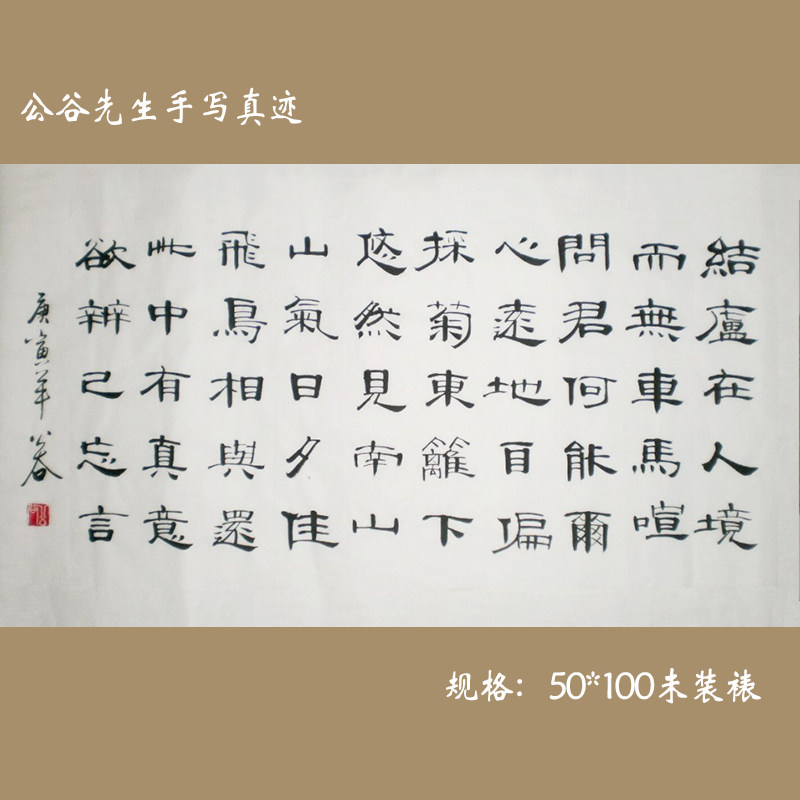 公谷先生手写真迹
結廬在人境
而無車馬喧
問君何能爾
心遠地自偏
採菊東籬下
悠然見南山
山氣日夕佳
飛鳥相與還
此中有真意
欲辨已忘言
庚寅年 公谷
规格：50*100未装裱